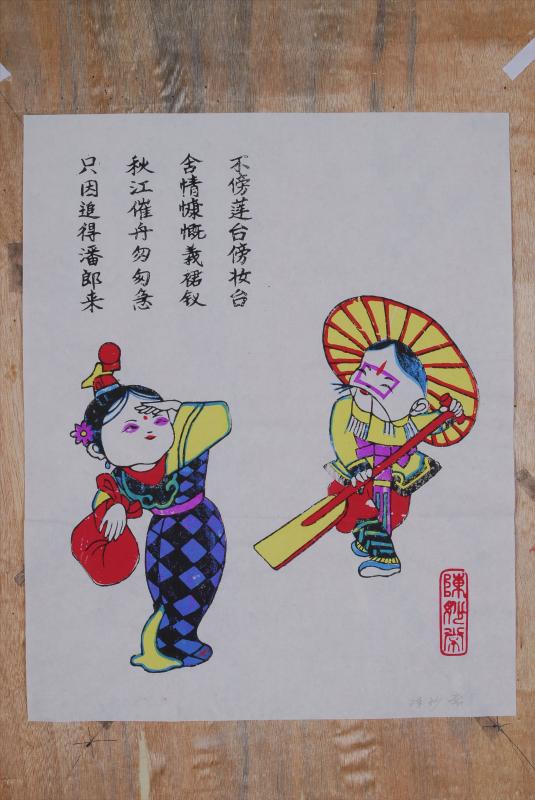 不傍莲台傍妆台
舍情慷慨義裙钗
秋江催舟匆匆急
只因追得潘郎来
陳